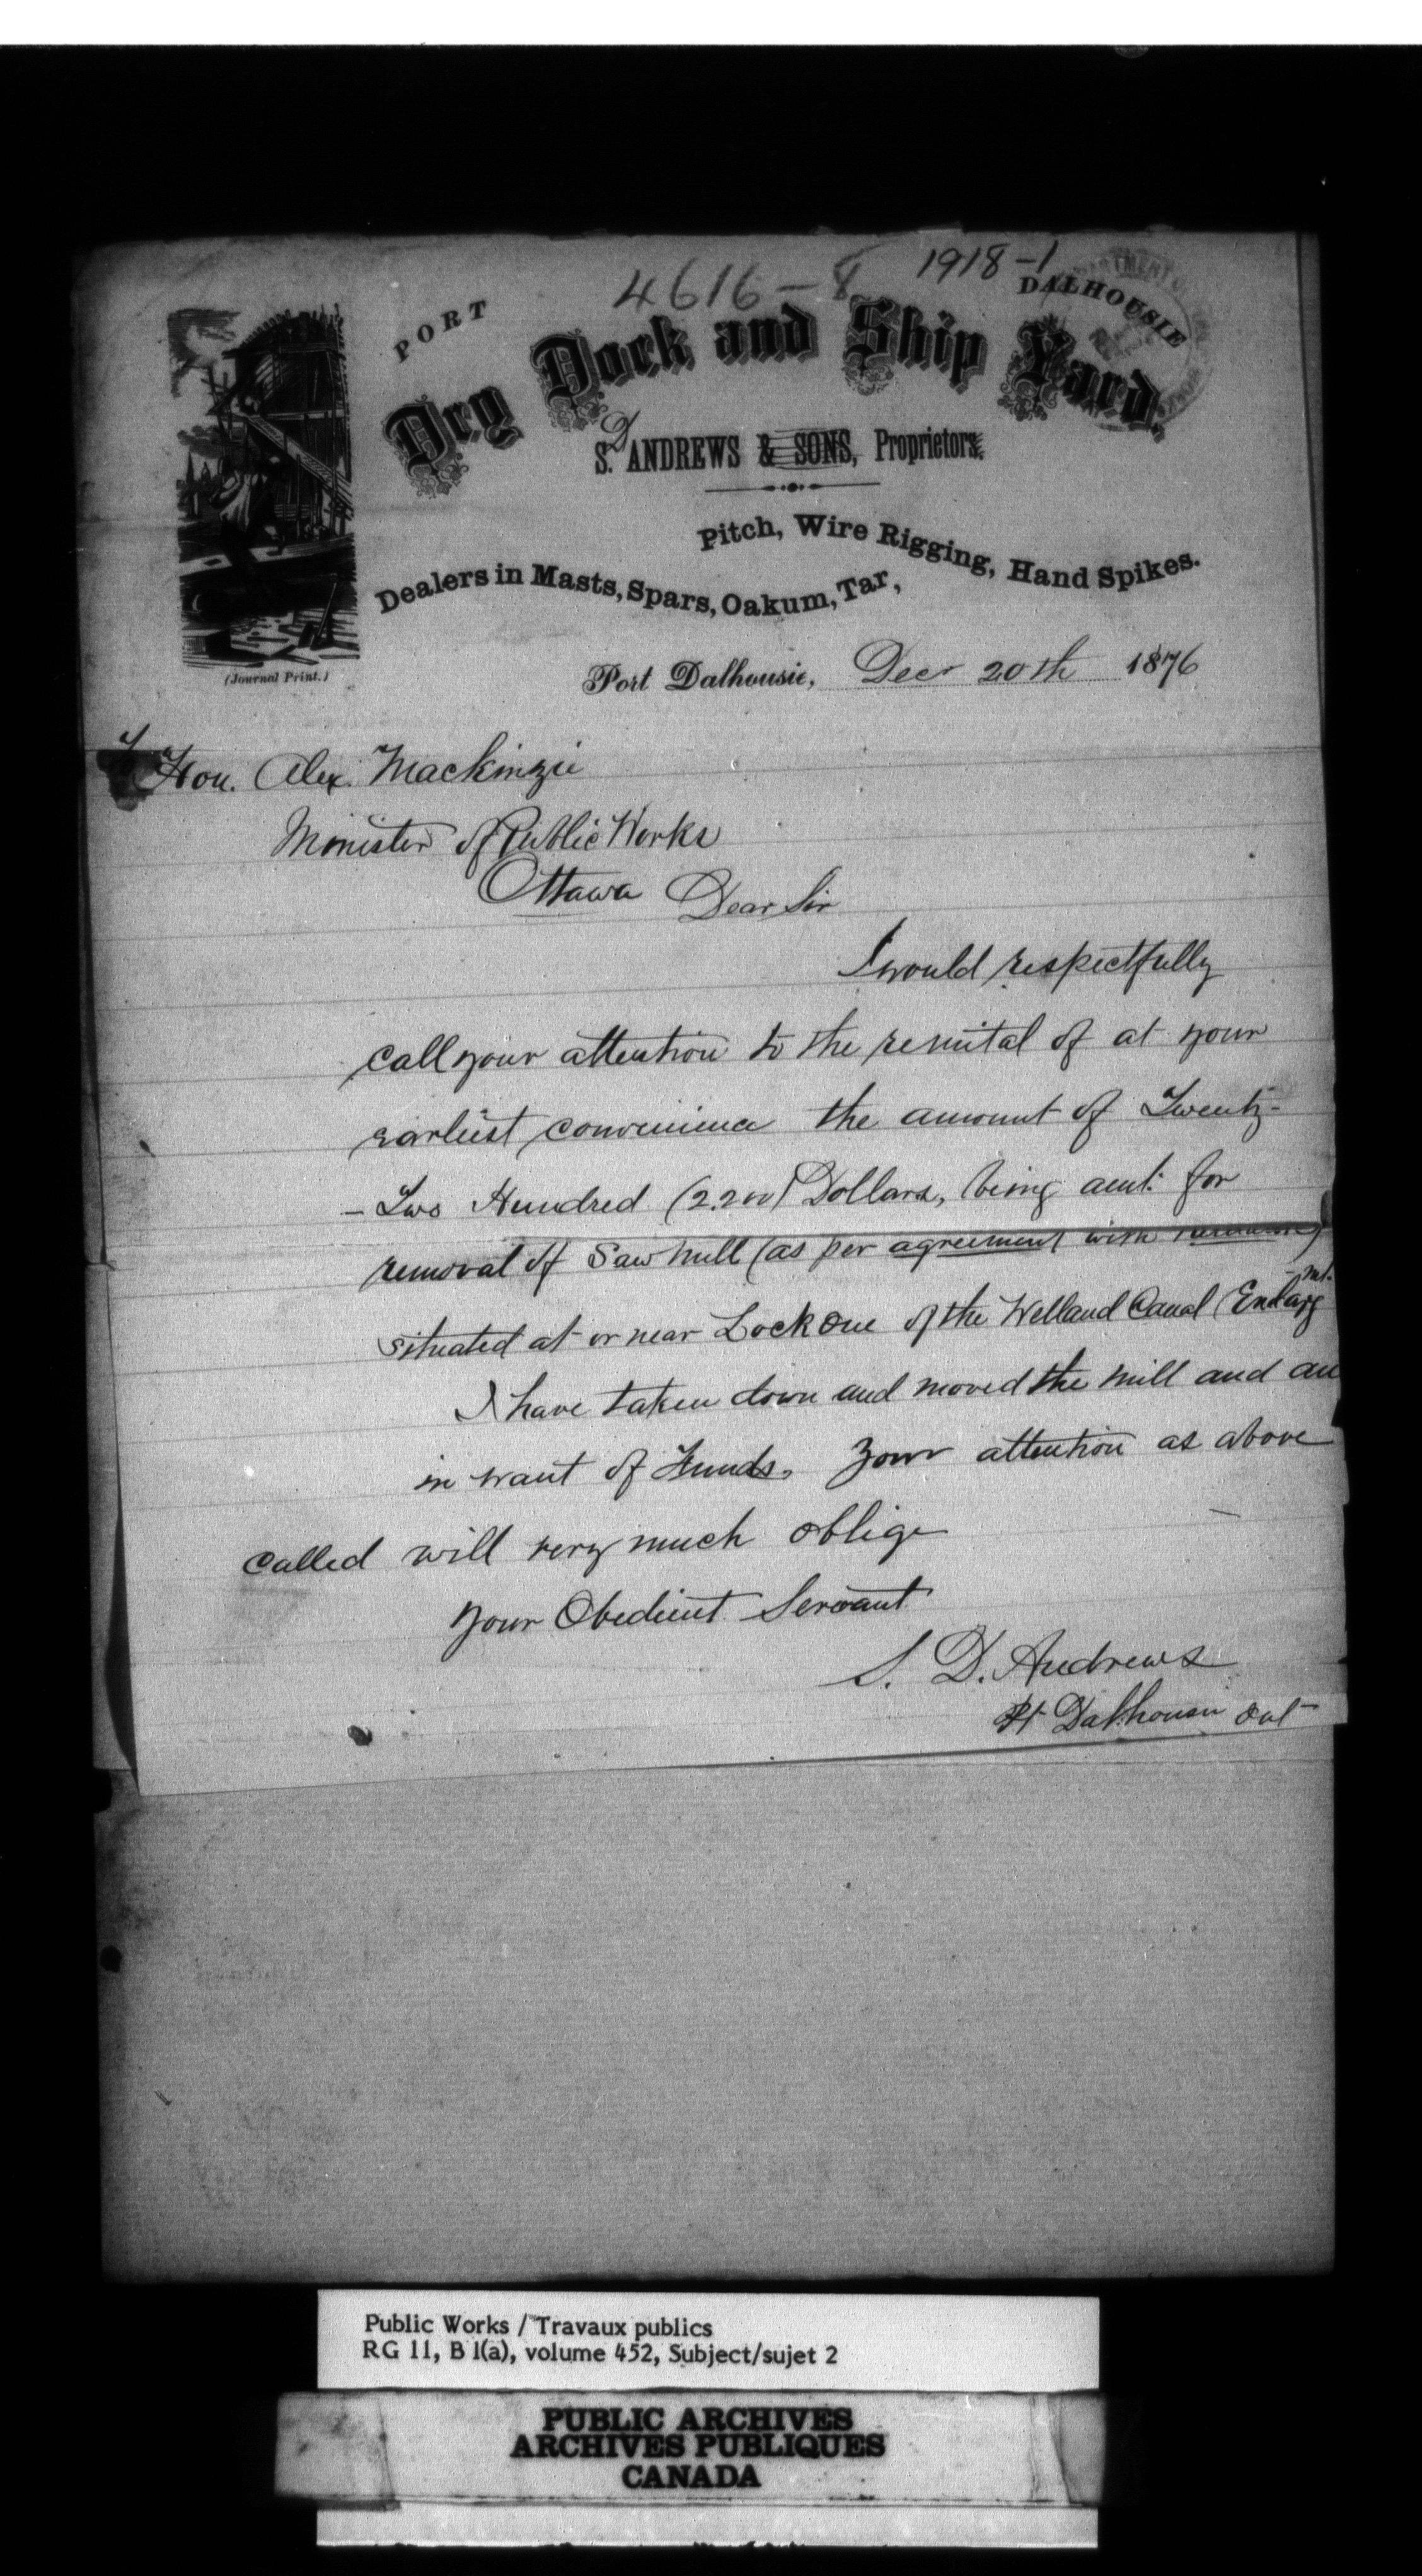 4616-8
1918-1
PORT DALHOUSIE
Dry Dock and Ship Yard.
S. D ANDREWS & SONS, Proprietors,
Dealers in Masts, Spars, Oakum, Tar, Pitch, Wire Rigging, Hand Spikes.
(Journal Print.)
Port Dalhousie, Decr 20th 1876
To Hon. Alex. Mackinzie
Minister of Public Works
Ottawa Dear Sir
I would respectfully
call your attention to the remital of at your
earliest convenience the amount of Twenty-
-Two Hundred (2.200) Dollars, being amt: for
removal of Saw Mill (as per agreement with
situated at or near Lock One of the Welland Canal (Enlarg-mt.
I have taken down and moved the mill and am
in want of Funds. Your attention as above
called will very much oblige
your Obedient Servant
S. D. Andrews
Pt Dalhousie Ont
Public Works / Travaux publics
RG 11, B 1(a), volume 452, Subject/sujet 2
PUBLIC ARCHIVES
ARCHIVES PUBLIQUES
CANADA